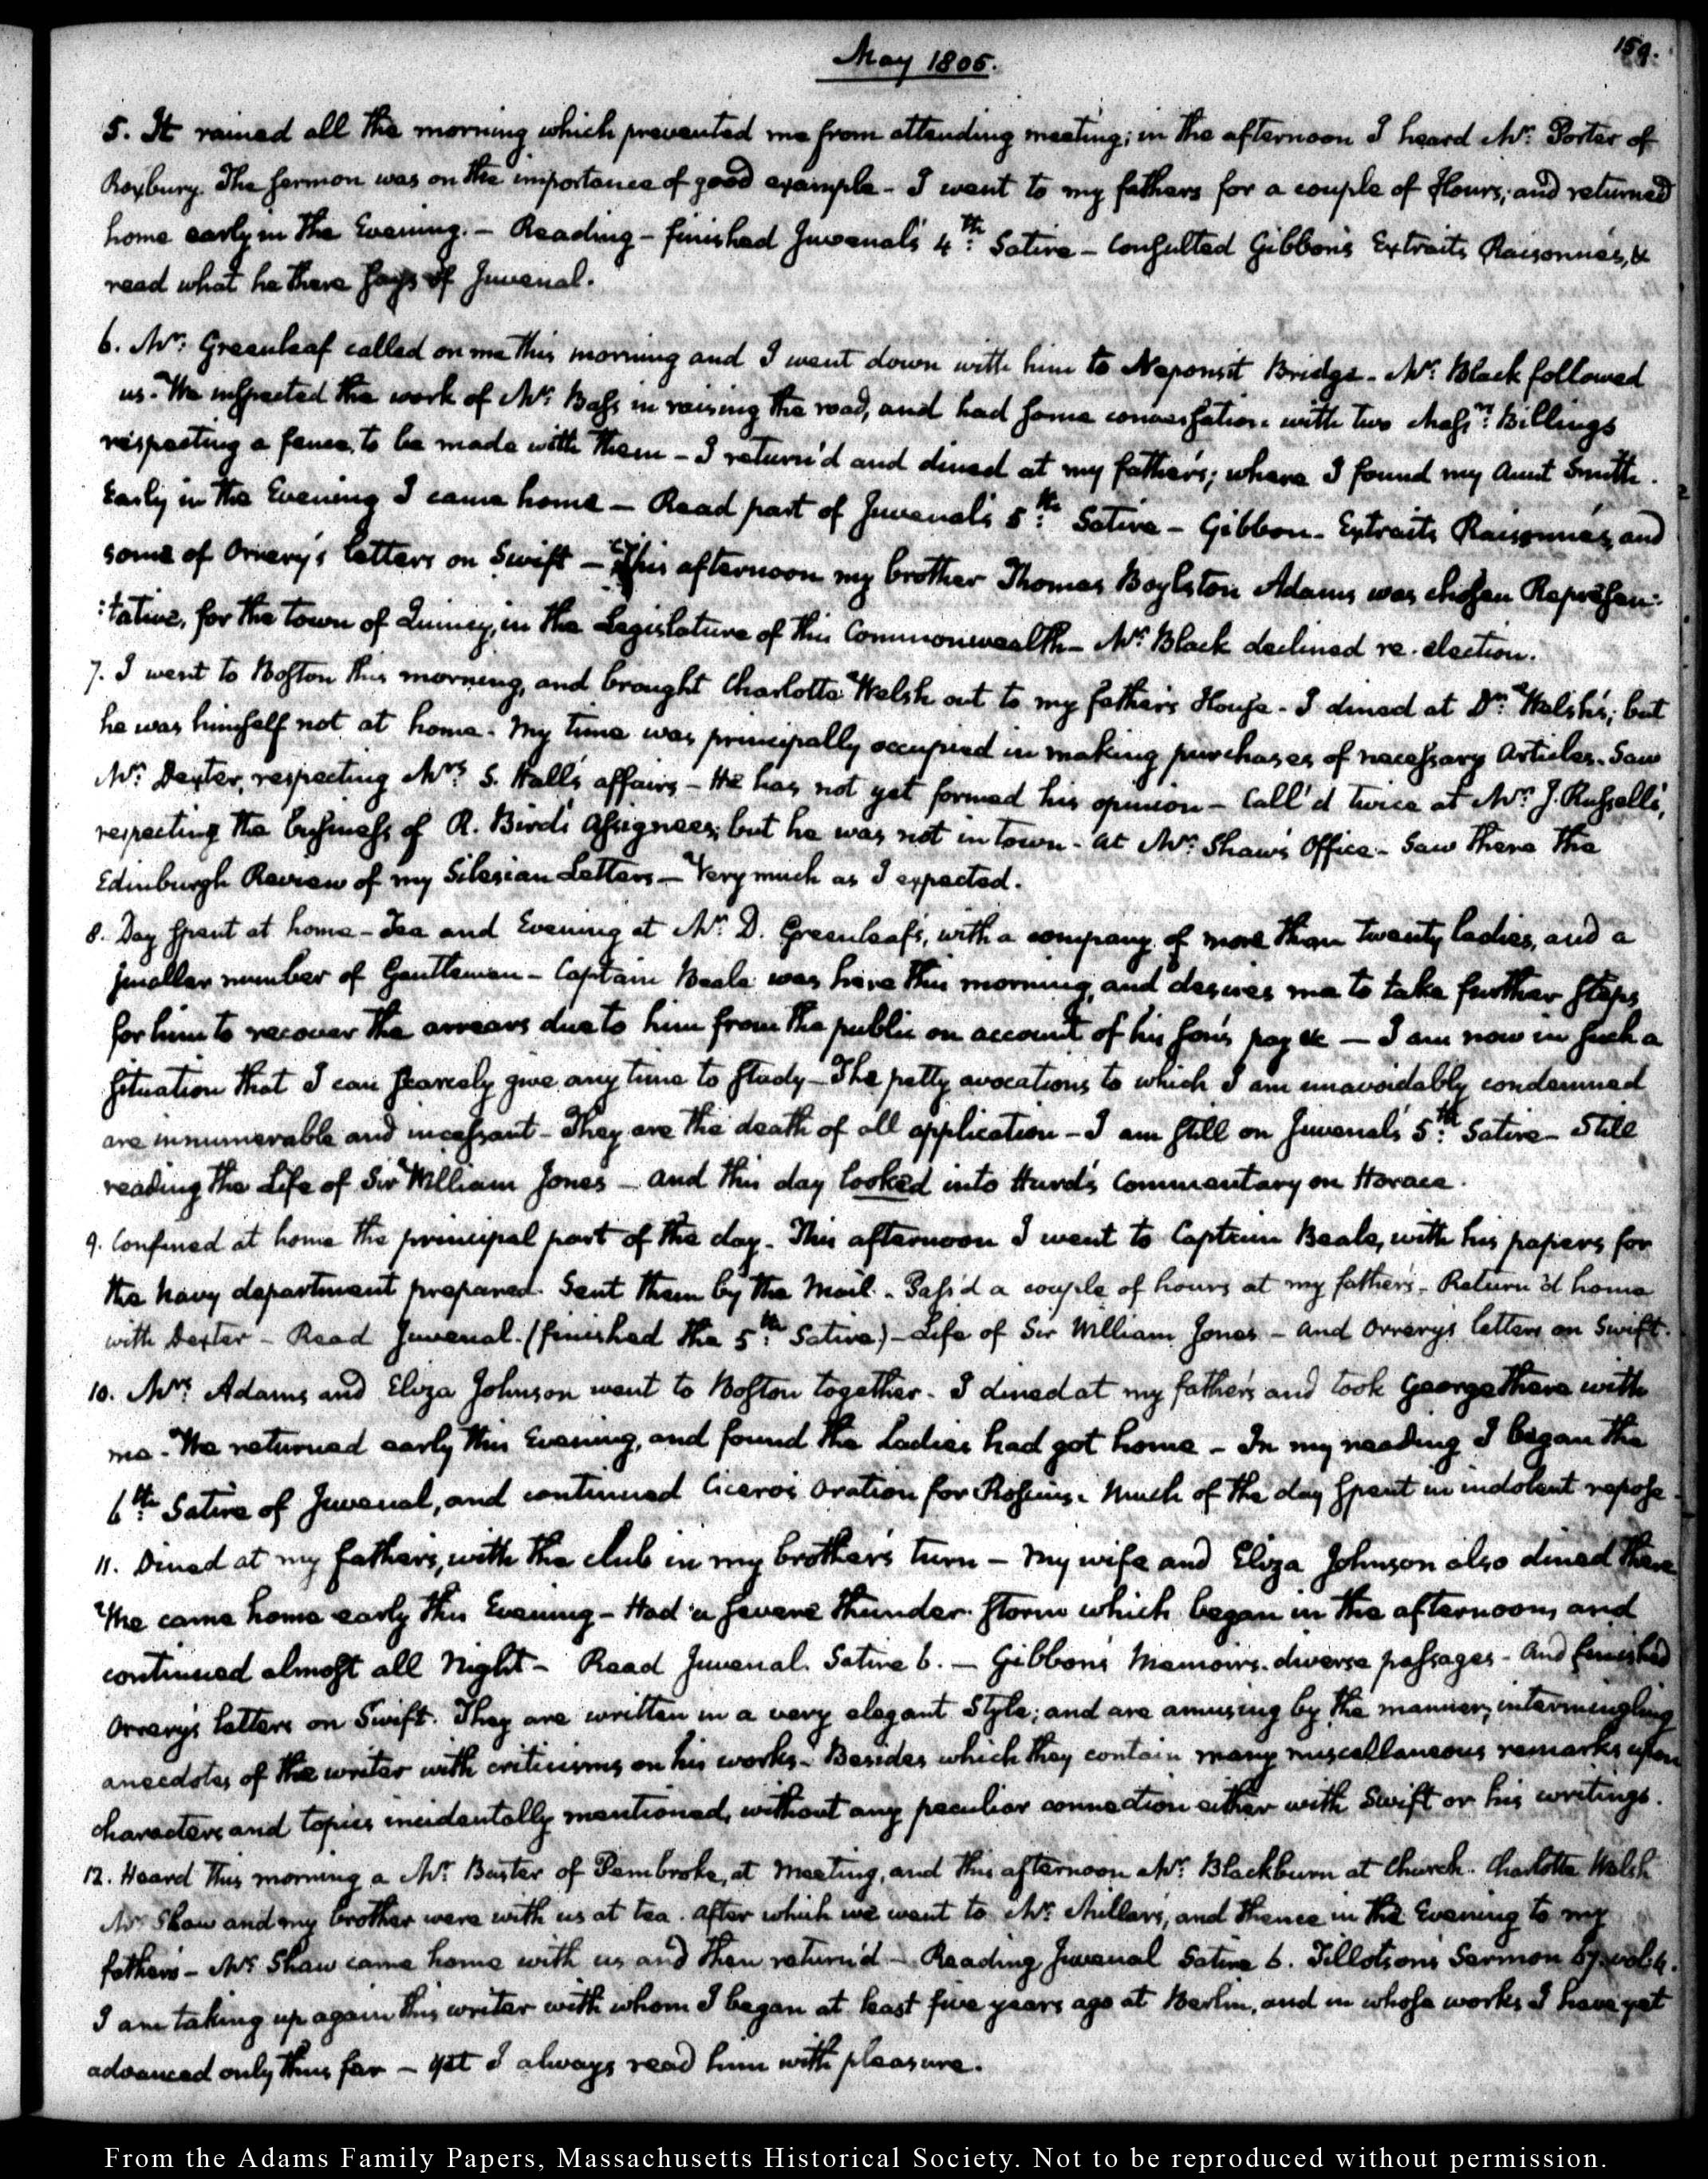 159.
May 1805.
5. It rained all the morning which prevented me from attending meeting; in the afternoon I heard Mr: Porter of
Roxbury. The sermon was on the importance of good example - I went to my fathers for a couple of Hours; and returned
home early in the Evening. - Reading - finished Juvenal's 4th: Satire - Consulted Gibbon's Extraits Raisonnés, &
read what he there says of Juvenal.
6. Mr: Greenleaf called on me this morning and I went down with him to Neponsit Bridge - Mr: Black followed
us. We inspected the work of Mr: Bass in raising the road, and had some conversation with two Messrs: Billings
respecting a fence, to be made with them - I return'd and dined at my father's; where I found my Aunt Smith.
Early in the Evening I came home - Read part of Juvenal's 5th: Satire - Gibbon - Extraits Raisonnés, and
some of Orrery's letters on Swift - This afternoon my brother Thomas Boylston Adams was chosen Represen:
:tative, for the town of Quincy, in the Legislature of this Commonwealth - Mr: Black declined re-election.
7. I went to Boston this morning, and brought Charlotte Welsh out to my father's House - I dined at Dr: Welsh's; but
he was himself not at home - My time was principally occupied in making purchases of necessary Articles. Saw
Mr: Dexter, respecting Mrs S. Hall's affairs - He has not yet formed his opinion - Call'd twice at Mr: J. Russell's,
respecting the business of R. Bird's Assignees; but he was not in town - At Mr: Shaw's Office - Saw there the
Edinburgh Review of my Silesian Letters - Very much as I expected.
8. Day spent at home - Tea and Evening at Mr: D. Greenleaf's, with a company of more than twenty ladies, and a
smaller number of Gentlemen - Captain Beale was here this morning, and desires me to take further steps
for him to recover the arrears due to him from the public on account of his son's pay &c - I am now in such a
situation that I can scarcely give any time to study - The petty avocations to which I am unavoidably condemned
are innumerable and incessant - They are the death of all application - I am still on Juvenal's 5th: Satire - Still
reading the Life of Sir William Jones - and this day looked into Hurd's Commentary on Horace.
9. Confined at home the principal part of the day - This afternoon I went to Captain Beale, with his papers for
the Navy department prepared. Sent them by the Mail - Pass'd a couple of hours at my father's - Return'd home
with Dexter - Read Juvenal. (finished the 5th: Satire) - Life of Sir William Jones - and Orrery's letters on Swift.
10. Mrs: Adams and Eliza Johnson went to Boston together - I dined at my father's and took George there with
me - We returned early this Evening, and found the Ladies had got home - In my reading I began the
6th: Satire of Juvenal, and continued Cicero's Oration for Roscius. Much of the day spent in indolent repose.
11. Dined at my father's, with the club in my brother's turn - My wife and Eliza Johnson also dined there
We came home early this Evening - Had a severe thunder storm which began in the afternoon, and
continued almost all Night - Read Juvenal. Satire 6. - Gibbon's Memoirs. diverse passages - And finished
Orrery's letters on Swift. They are written in a very elegant Style; and are amusing by the manner, intermingling
anecdotes of the writer with criticisms on his works - Besides which they contain many miscellaneous remarks upon
characters and topics incidentally mentioned, without any peculiar connection either with Swift or his writings.
12. Heard this morning a Mr: Baxter of Pembroke, at Meeting, and this afternoon Mr: Blackburn at Church. Charlotte Welsh
Mr: Shaw and my brother were with us at tea. After which we went to Mr: Millar's, and thence in the Evening to my
father's - Mr: Shaw came home with us and then return'd - Reading Juvenal Satire 6. Tillotson's Sermon 67. vol: 4.
I am taking up again this writer with whom I began at least five years ago at Berlin, and in whose works I have yet
advanced only thus far - Yet I always read him with pleasure.
From the Adams Family Papers, Massachusetts Historical Society. Not to be reproduced without permission.